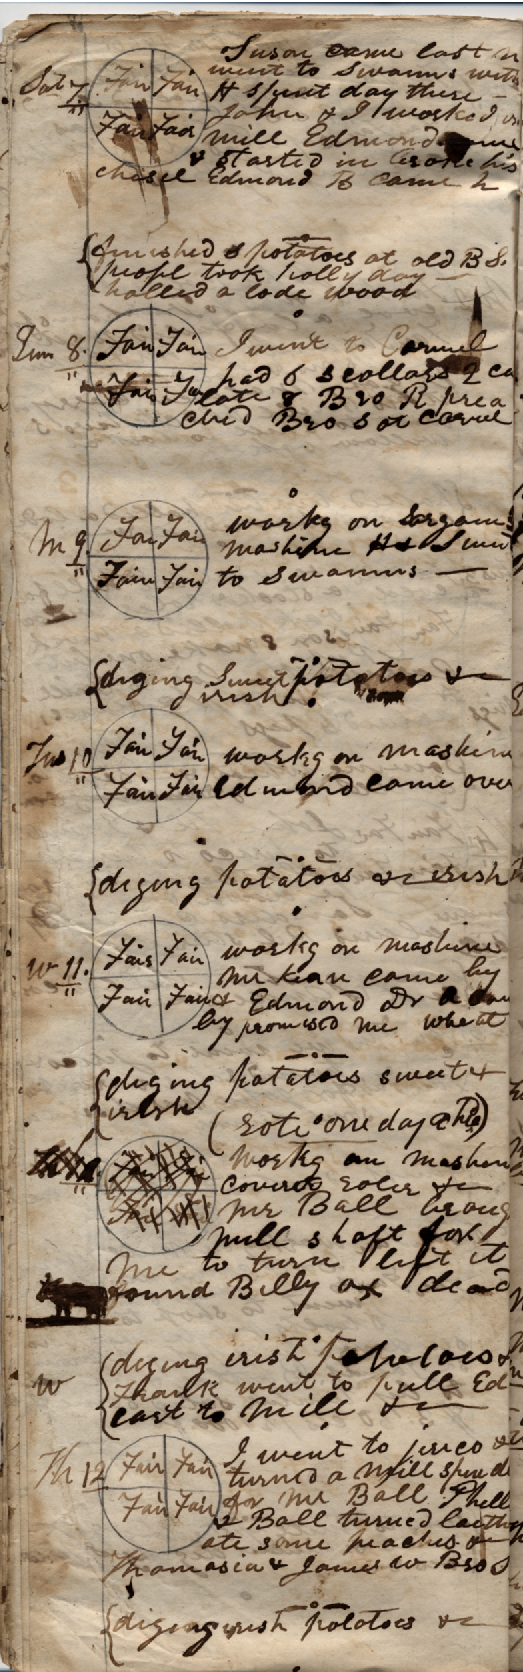 Susan came last n
Sat 7. Fair Fair went to Swanns with
H spent day there
Fair Fair John & I worked
mill Edmond
& started in his
chisel Edmond B came h
{finished s potatoes at old B S.
peopl took holly day
halled a lode wood
Sun 8. Fair Fair I went to Carmel
Fair Fair had 6 scollars 2 ca
late & Bro R prea
ched Bro S at Carmel
M 9. Fair Fair workg on Sorgam
mashine H & S
Fair Fair to Swanns
{diging Sweet potatoes &c
irish
Tus 10 Fair Fair workg on mashin
Fair Fair Edmond came over
{diging potatoes &c irish
W 11. Fair Fair workg on mashine
Mr Kean came by
Fair Fair & Edmond Dr
by promised me wheat
{diging potatoes sweet &
irish
(rote one day a hed)
Th workg on mashen
covered roler &c
Mr Ball broug
mill shaft for
me to turn left it
found Billy ox dead
W {diging irish potatoes &
Frank went to pull Ed
cast to Mill &c
Th 12 Fair Fair I went to &
turned a Mill spindl
Fair Fair for Mr Ball Phill
& Ball turned
ate some peaches &
Thomasia & James W Bro
{diging irish potatoes &c